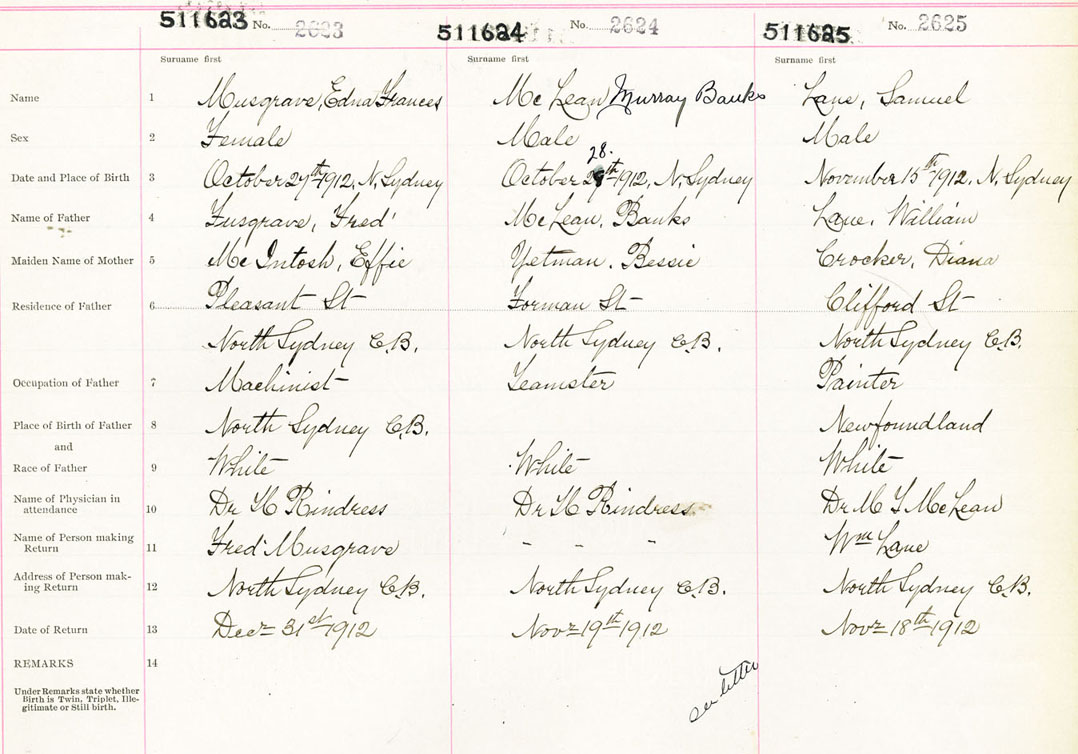 511623 No. 2623 511624 No. 2624 511625 No. 2625
Surname first Surname first Surname first
Name 1 Musgrave, Edna Frances Mc Lean Murray Banks Lane, Samuel
Sex 2 Female Male Male
28.
Date and Place of Birth 3 October 27th 1912, N, Sydney October 28th 1912, N, Sydney November 15th 1912, N, Sydney
Name of Father 4 Musgrave, Fred' McLean, Banks Lane, William
Maiden Name of Mother 5 Mc Intosh, Effie Yetman, Bessie Crocker, Diana
Residence of Father 6 Pleasant St Forman St Clifford St
North Sydney C.B. North Sydney C.B. North Sydney C.B.
Occupation of Father 7 Machinist Teamster Painter
Place of Birth of Father 8 North Sydney C.B. Newfoundland
and
Race of Father 9 White White White
Name of Physician in
attendance 10 Dr H Rindress Dr H Rindress Dr M T McLean
Name of Person making
Return 11 Fred' Musgrave - - - Wm Lane
Address of Person mak-
ing Return 12 North Sydney C.B. North Sydney C.B. North Sydney C.B.
Date of Return 13 Decr 31st 1912 Novr 19th 1912 Novr 18th 1912
REMARKS 14
see letter
Under Remarks state whether
Birth is Twin, Triplet, Ille-
gitimate or Still birth.